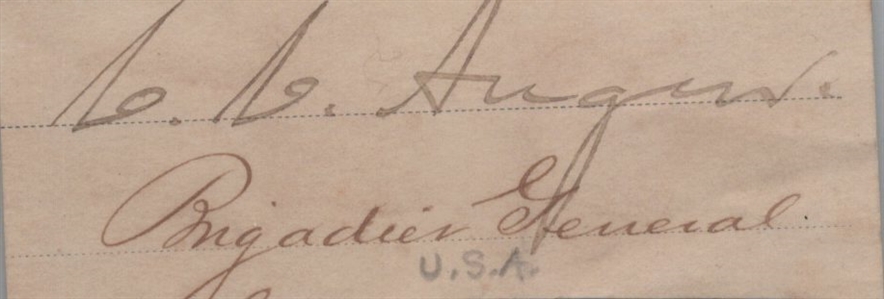 C. C. Augur.
Brigadier General
U.S.A.